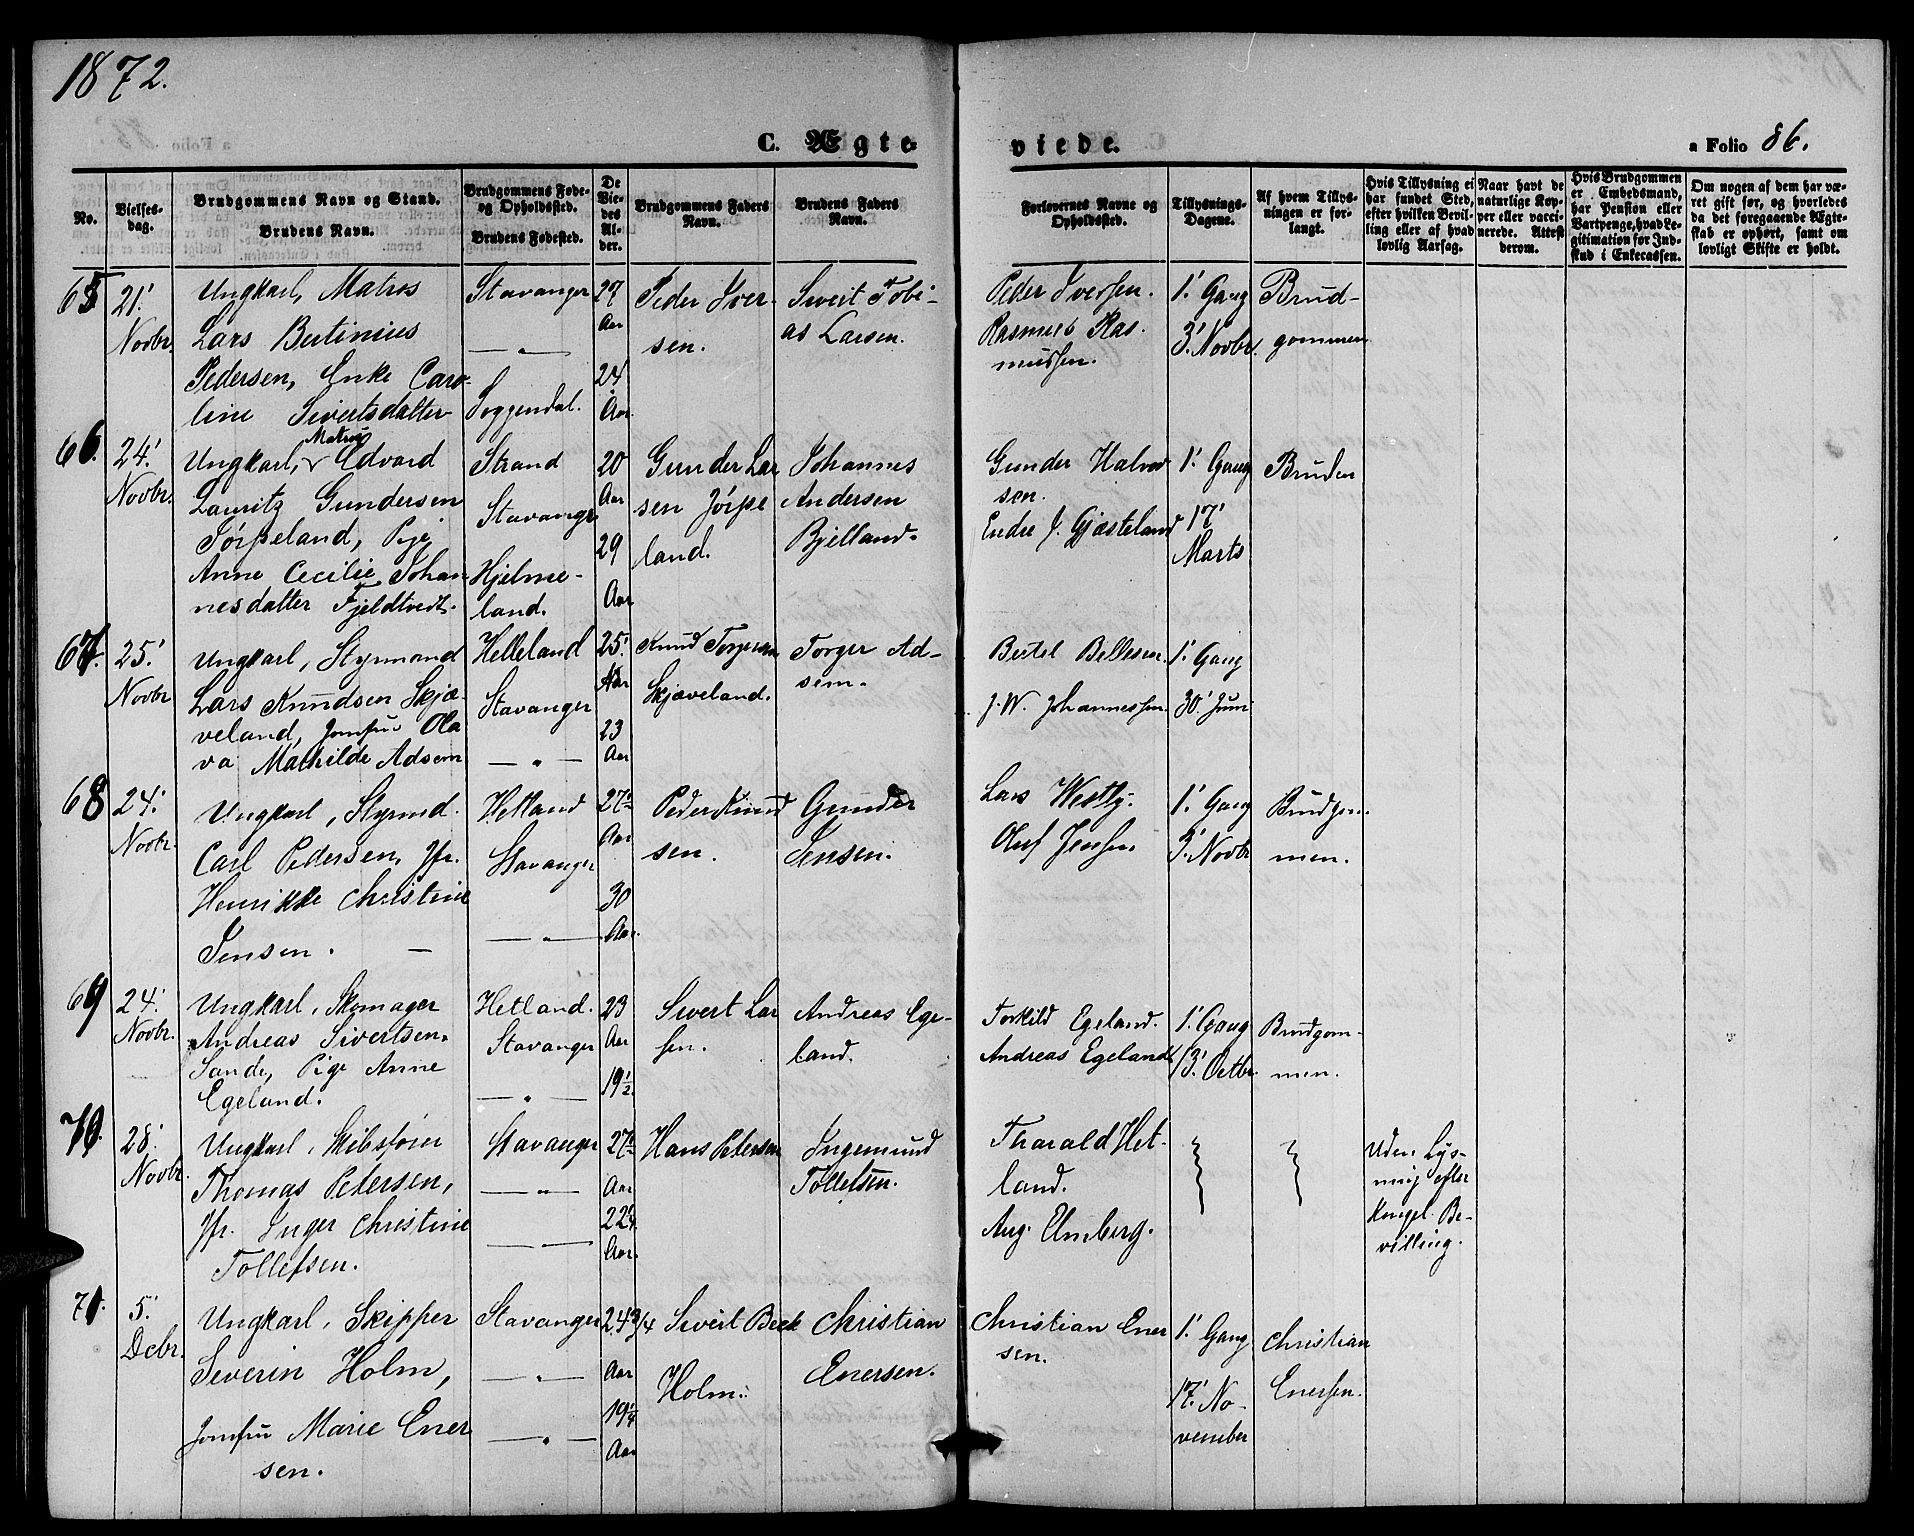 1872.
C. Ægte-
viede.
a Folio 86.
No.
Vielses-
dag.
Brudgommens Navn og Stand.
Brudens Navn.
Brudgommens Føde-
og Opholdssted.
Brudens Fødested.
De
Vie-
des
Al-
der.
Brudgommens Faders
Navn.
Brudens Faders
Navn.
Forlovernes Navne og
Opholdssted.
Tillysnings-
Dagene.
Af hvem Tillys-
ningen er for-
langt.
Hvis Tillysning ei
har fundet Sted,
efter hvilken Bevil-
ling eller af hvad
lovlig Aarsag.
Naar havt de
naturlige Kop-
per eller vacci-
nerede. Attest
derom.
Hvis Brudgommen
er Embedsmand,
har Pension eller
Vartpenge, hvad Le-
gitimation for Ind-
skud i Enkecassen.
Om nogen af dem har væ-
ret gift før, og hvorledes
da det foregaaende Ægte-
skab er ophørt, samt om
lovligt Skifte er holdt.
65
21'
Novbr.
Ungkarl, Matros
Lars Bertinius
Pedersen, Enke Caro-
line Sivertsdatter
Stavanger
— " —
Soggendal.
27
Aar
24
Aar.
Peder Iver-
sen.
Sivert Tobi-
as Larsen.
Peder Iversen.
Rasmus Ras-
mussen.
1' Gang
3' Novbr.
Brud-
gommen
66.
24'
Novbr.
Matros
Ungkarl, v Edvard
Lauritz Gundersen
Jørpeland, Pige
Anne Cecilie Johan-
nesdatter Fjeldtvedt.
Strand
Stavanger
Hjelme-
land.
20
Aar
29
Aar
Gunder Lar
sen Jørpe
land.
Johannes
Andersen
Bjelland.
Gunder Halvor
sen.
Endre J. Gjæsteland
1' Gang
17'
Marts
Bruden
67.
25'
Novbr
Ungkarl, Styrmand
Lars Knudsen Skjæ-
veland, Jomfru Ola
va Mathilde Adsem
Helleland
Stavanger
— " —
25'
Aar
23
Aar
Knud Torgersen
Skjæveland.
Torger Ad-
sem.
Bertel Bellesen.
J. W. Johannessen.
1' Gang
30' Juni
68
24'
Novbr.
Ungkarl, Styrmd.
Carl Pedersen, Jfr.
Henrikke Christine
Jensen. —
Hetland
Stavanger
— " —
27½
Aar
30
Aar.
Peder Knud
sen.
Gunder
Jensen.
Lars Westly.
Oluf Jensen
1' Gang
3' Novbr
Brudgom-
men.
69
24'
Novbr.
Ungkarl, Skomager
Andreas Sivertsen
Sande, Pige Anne
Egeland.
Hetland.
Stavanger
— " —
23
Aar
19½
Sivert Lar
sen.
Andreas Ege-
land.
Torkild Egeland.
Andreas Egeland
1' Gang
13' Octbr.
Brudgom-
men.
70.
28'
Novbr.
Ungkarl, Skibsfører
Thomas Petersen,
Jfr. Inger Christine
Tollefsen.
Stavanger
— " —
— " —
27½
Aar
22¼
Aar.
Hans Petersen
Ingemund
Tollefsen.
Tharald Het-
land.
Aug. Elmberg.
Uden Lys-
ning efter
Kongel. Be-
villing.
71.
5'
Decbr.
Ungkarl, Skipper
Severin Holm,
Jomfru Marie Ener
sen.
Stavanger
— " —
— " —
24 3/4
Aar
19¼
Aar
Sivert Beck
Holm.
Christian
Enersen.
Christian Ener
sen.
1' Gang
17' No-
vember
Christian
Enersen.